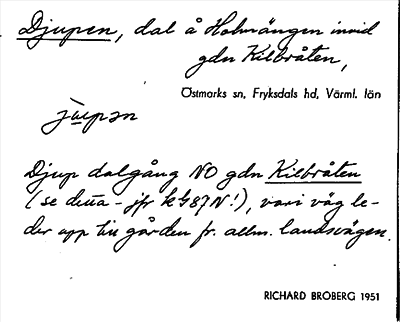 Djupen, dal å Holmängen invid
gdn Kilbråten,
Östmarks sn, Fryksdals hd, Värml. län
Djup dalgång NO gdn Kilbråten
(se detta - jfr k 487 N!), vari väg le-
der upp till gården fr. allm. landsvägen.
RICHARD BROBERG 1951